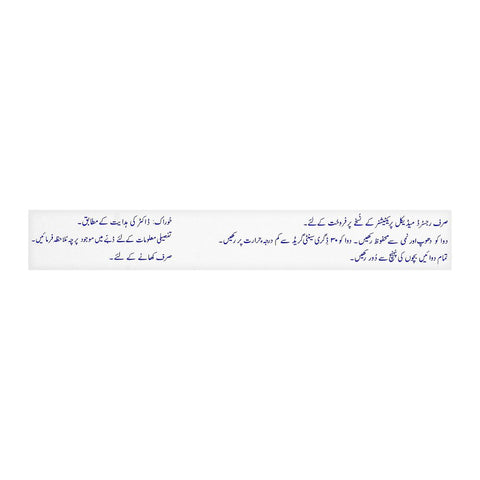 صرف رجسٹرڈ میڈیکل پریکٹیشنر کے نسخے پر فروخت کے لئے۔
دوا کو دھوپ اور نمی سے محفوظ رکھیں۔ دوا کو ۳۰ ڈگری سینٹی گریڈ سے کم درجہ حرارت پر رکھیں۔
تمام دوائیں بچوں کی پہنچ سے دُور رکھیں۔
خوراک: ڈاکٹر کی ہدایت کے مطابق۔
تفصیلی معلومات کے لئے ڈبے میں موجود پرچہ ملاحظہ فرمائیں۔
صرف کھانے کے لئے۔